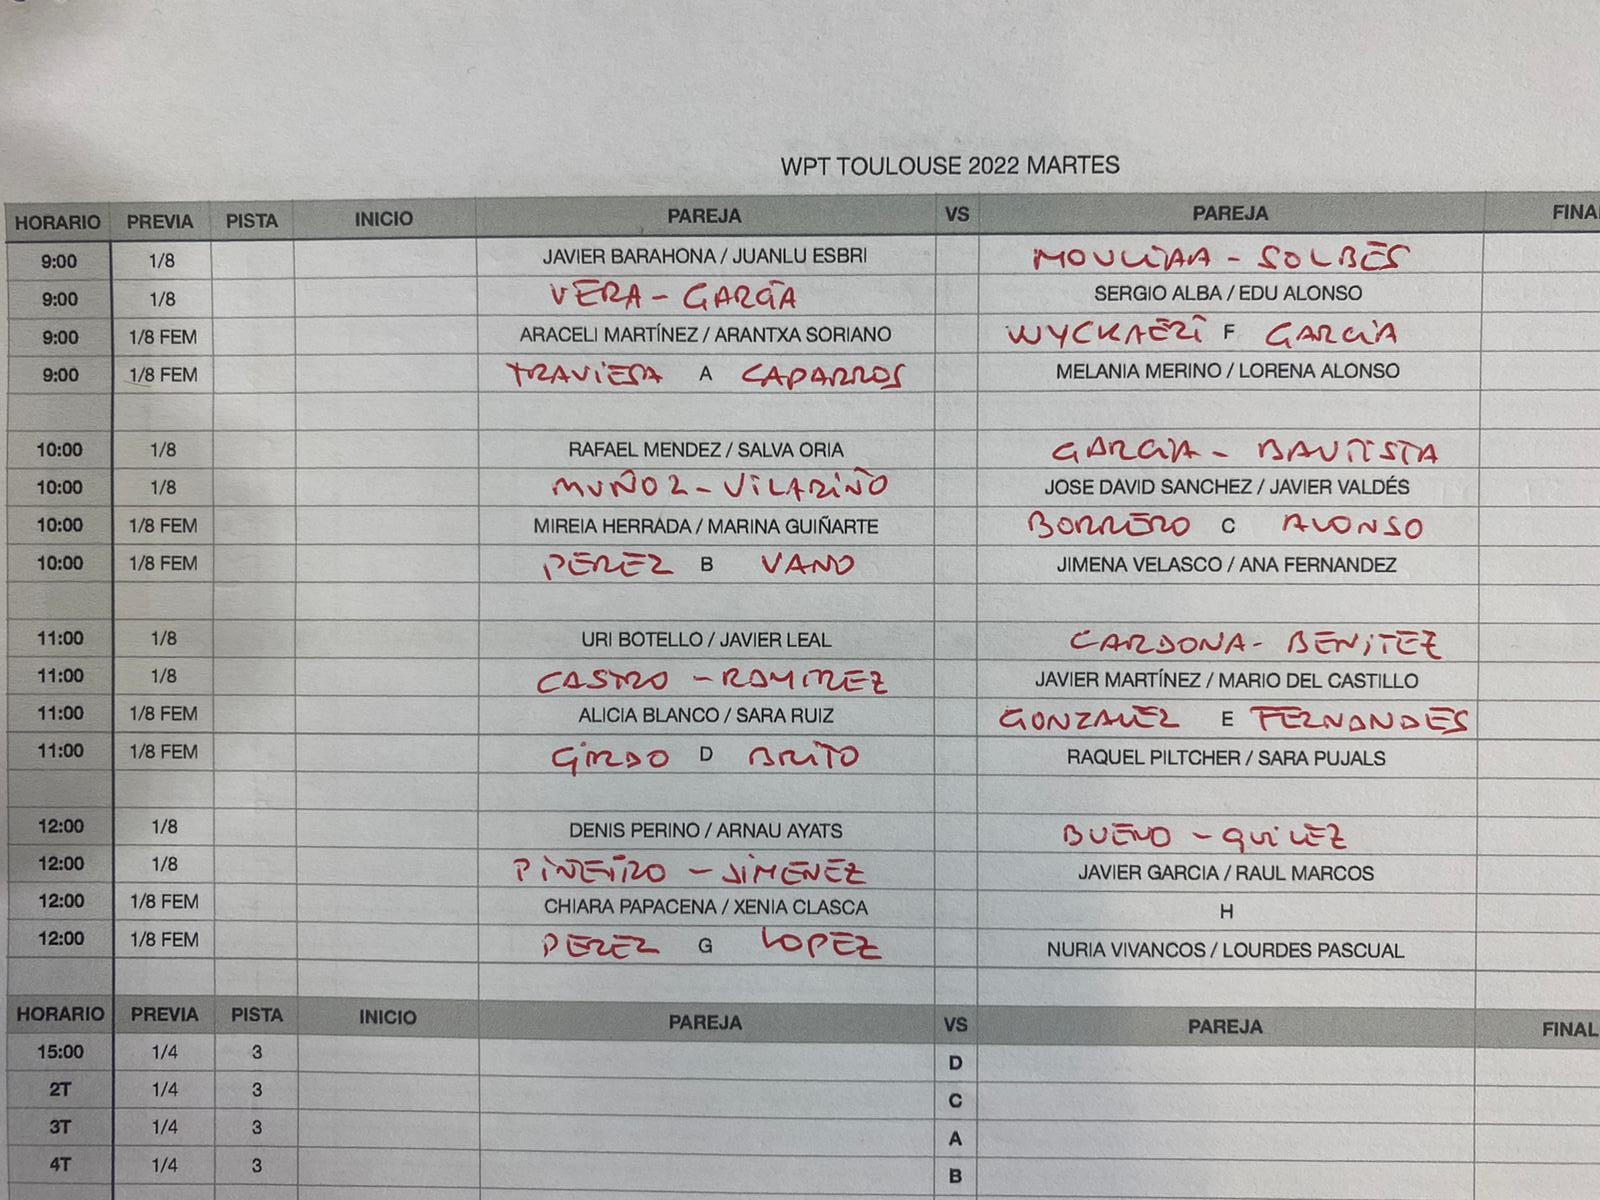 WPT TOULOUSE 2022 MARTES
HORARIO PREVIA PISTA INICIO PAREJA VS PAREJA FINAL
9:00 1/8 JAVIER BARAHONA / JUANLU ESBRI - SOLBES
9:00 1/8 VERA - GARCÍA SERGIO ALBA / EDU ALONSO
9:00 1/8 FEM ARACELI MARTÍNEZ / ARANTXA SORIANO WYCKAERT F GARCIA
9:00 1/8 FEM TRAVIESA A CAPARROS MELANIA MERINO / LORENA ALONSO
10:00 1/8 RAFAEL MENDEZ / SALVA ORIA GARCIA - BAUTISTA
10:00 1/8 MUÑOZ - VILARIÑO JOSE DAVID SANCHEZ / JAVIER VALDÉS
10:00 1/8 FEM MIREIA HERRADA / MARINA GUIÑARTE BORRERO C ALONSO
10:00 1/8 FEM PEREZ B VANO JIMENA VELASCO / ANA FERNANDEZ
11:00 1/8 URI BOTELLO / JAVIER LEAL CARDONA - BENITEZ
11:00 1/8 CASTRO - RAMIREZ JAVIER MARTÍNEZ / MARIO DEL CASTILLO
11:00 1/8 FEM ALICIA BLANCO / SARA RUIZ GONZALEZ E FERNANDES
11:00 1/8 FEM GIRDO D BRITO RAQUEL PILTCHER / SARA PUJALS
12:00 1/8 DENIS PERINO / ARNAU AYATS BUENO - QUILEZ
12:00 1/8 PIÑEIRO - JIMENEZ JAVIER GARCIA / RAUL MARCOS
12:00 1/8 FEM CHIARA PAPACENA / XENIA CLASCA H
12:00 1/8 FEM PEREZ G LOPEZ NURIA VIVANCOS / LOURDES PASCUAL
HORARIO PREVIA PISTA INICIO PAREJA VS PAREJA FINAL
15:00 1/4 3 D
2T 1/4 3 C
3T 1/4 3 A
4T 1/4 3 B